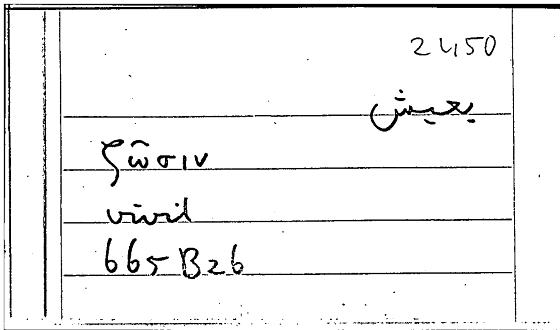 2450
يعيش
ζῶσιν
vivit
665 B26